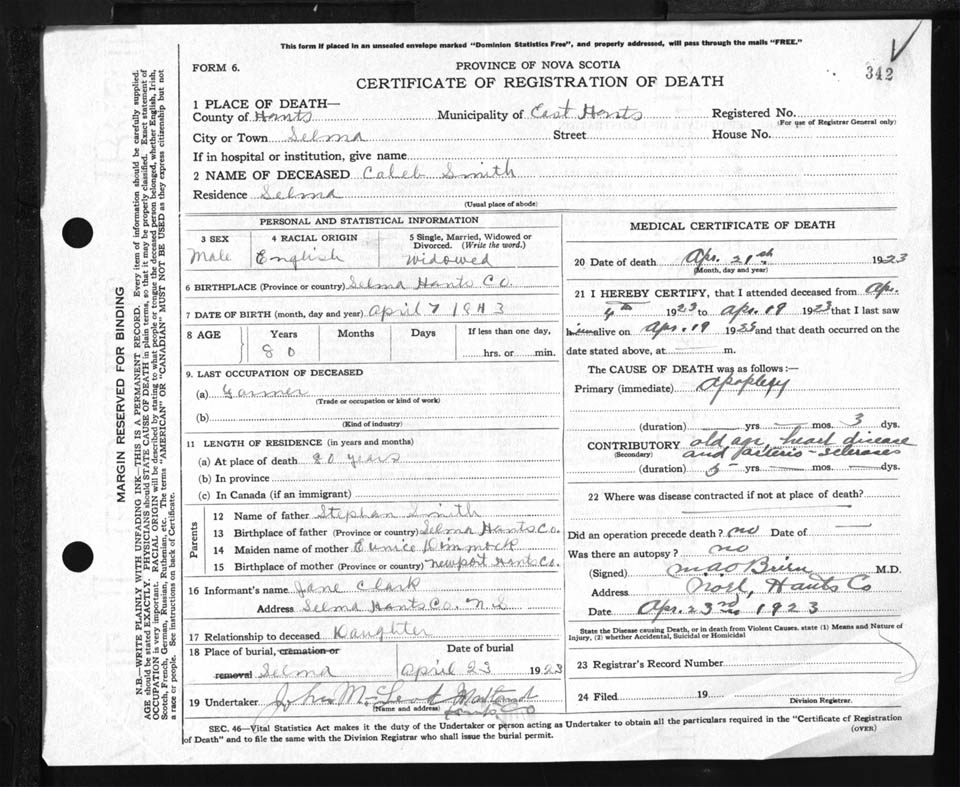 This form if placed in an unsealed envelope marked "Dominion Statistics Free", and properly addressed, will pass through the mails "FREE."
342
FORM 6.
PROVINCE OF NOVA SCOTIA
CERTIFICATE OF REGISTRATION OF DEATH
1 PLACE OF DEATH—
County of Hants Municipality of East Hants Registered No.
(For use of Registrar General only)
City or Town Selma Street House No.
If in hospital or institution, give name
2 NAME OF DECEASED Caleb Smith
Residence Selma
(Usual place of abode)
PERSONAL AND STATISTICAL INFORMATION
3 SEX 4 RACIAL ORIGIN 5 Single, Married, Widowed or Divorced. (Write the word.)
Male English Widowed
6 BIRTHPLACE (Province or country) Selma Hants Co.
7 DATE OF BIRTH (month, day and year) April 7 1843
8 AGE Years Months Days If less than one day,
80 hrs. or min.
9. LAST OCCUPATION OF DECEASED
(a) Farmer
(Trade or occupation or kind of work)
(b)
(Kind of industry)
11 LENGTH OF RESIDENCE (in years and months)
(a) At place of death 80 years
(b) In province
(c) In Canada (if an immigrant)
Parents
12 Name of father Stephen Smith
13 Birthplace of father (Province or country) Selma Hants Co.
14 Maiden name of mother Eunice Dimmock
15 Birthplace of mother (Province or country) Newport Hants Co.
16 Informant's name Jane Clark
Address Selma Hants Co. N.S.
17 Relationship to deceased Daughter
18 Place of burial, cremation or removal Date of burial
Selma April 23 1923
19 Undertaker John McLeod Maitland
(Name and address) Hants Co
MEDICAL CERTIFICATE OF DEATH
20 Date of death Apr. 21st 1923
(Month, day and year)
21 I HEREBY CERTIFY, that I attended deceased from Apr.
4th 1923 to Apr. 19 1923 that I last saw
him alive on Apr. 19 1923 and that death occurred on the
date stated above, at m.
The CAUSE OF DEATH was as follows:—
Primary (immediate) Apoplexy
(duration) yrs mos. 3 dys.
CONTRIBUTORY old age, heart disease
(Secondary) and arterio-scleroses
(duration) 5 yrs mos. dys.
22 Where was disease contracted if not at place of death?
Did an operation precede death? no Date of
Was there an autopsy? no
(Signed) O'Brien M.D.
Address Noel, Hants Co
Date Apr. 23rd 1923
State the Disease causing Death, or in death from Violent Causes, state (1) Means and Nature of
Injury, (2) whether Accidental, Suicidal or Homicidal
23 Registrar's Record Number
24 Filed 19
Division Registrar.
SEC. 46—Vital Statistics Act makes it the duty of the Undertaker or person acting as Undertaker to obtain all the particulars required in the "Certificate of Registration
of Death" and to file the same with the Division Registrar who shall issue the burial permit.
(OVER)
MARGIN RESERVED FOR BINDING
N.B.—WRITE PLAINLY WITH UNFADING INK—THIS IS A PERMANENT RECORD. Every item of information should be carefully supplied.
AGE should be stated EXACTLY. PHYSICIANS should STATE CAUSE OF DEATH in plain terms, so that it may be properly classified. Exact statement of
OCCUPATION is very important. RACIAL ORIGIN will be described by stating to what people or tongue the deceased person belonged, whether English, Irish,
Scotch, French, German, Russian, Ruthenian, etc. The terms "AMERICAN" OR "CANADIAN" MUST NOT BE USED as they express citizenship but not
a race or people. See instructions on back of Certificate.